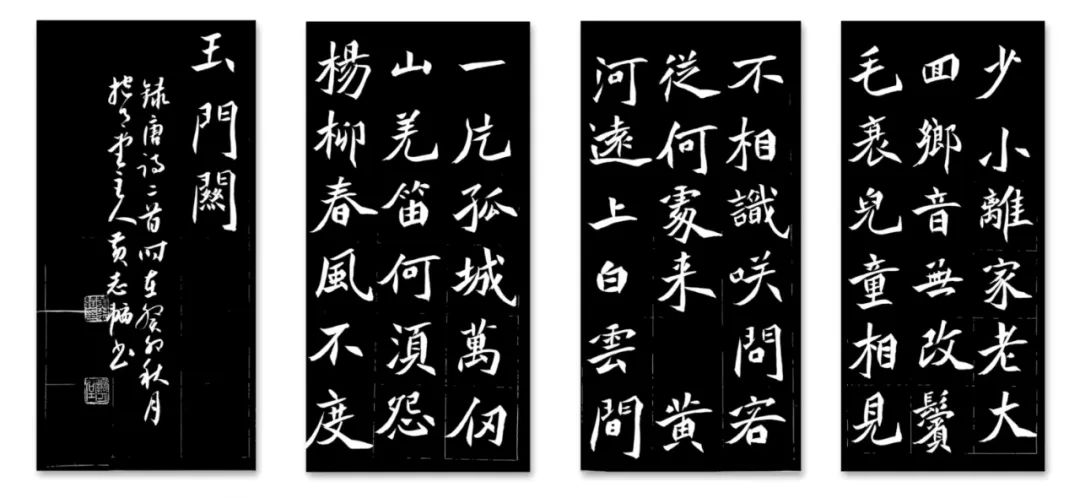 少小離家老大
囬鄉音無改鬢
毛衰兒童相見
不相識咲問客
從何處来 黄
河遠上白雲間
一片孤城萬仞
山羌笛何須怨
楊柳春風不度
玉門關
録唐詩二首时在癸卯秋月
堂主人黄志书